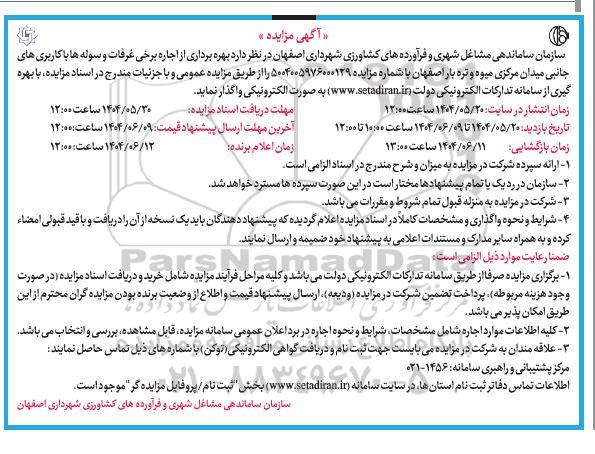 « آگهی مزایده »
سازمان ساماندهی مشاغل شهری و فرآورده های کشاورزی شهرداری اصفهان در نظر دارد بهره برداری از اجاره برخی غرفات و سوله ها با کاربری های
جانبی میدان مرکزی میوه و تره بار اصفهان با شماره مزایده ۵۰۰۴۰۰۵۹۷۶۰۰۰۱۳۹ را از طریق مزایده عمومی و با جزئیات مندرج در اسناد مزایده، با بهره
گیری از سامانه تدارکات الکترونیکی دولت (www.setadiran.ir) به صورت الکترونیکی واگذار نماید.
زمان انتشار در سایت: ۱۴۰۴/۰۵/۲۰ ساعت ۱۲:۰۰ مهلت دریافت اسناد مزایده: ۱۴۰۴/۰۵/۳۰ ساعت ۱۲:۰۰
تاریخ بازدید: ۱۴۰۴/۰۵/۲۰ تا ۱۴۰۴/۰۶/۰۹ ساعت ۱۰:۰۰ تا ۱۲:۰۰ آخرین مهلت ارسال پیشنهاد قیمت: ۱۴۰۴/۰۶/۰۹ ساعت ۱۲:۰۰
زمان بازگشایی: ۱۴۰۴/۰۶/۱۱ ساعت ۱۳:۰۰ زمان اعلام برنده: ۱۴۰۴/۰۶/۱۲ ساعت ۱۲:۰۰
۱- ارائه سپرده شرکت در مزایده به میزان و شرح مندرج در اسناد الزامی است.
۲- سازمان در رد یک یا تمام پیشنهادها مختار است در این صورت سپرده ها مسترد خواهد شد.
۳- شرکت در مزایده به منزله قبول تمام شروط و مقررات می باشد.
۴- شرایط و نحوه واگذاری و مشخصات کاملاً در اسناد مزایده اعلام گردیده که پیشنهاد دهندگان باید یک نسخه از آن را دریافت و با قید قبولی امضاء
کرده و به همراه سایر مدارک و مستندات اعلامی به پیشنهاد خود ضمیمه و ارسال نمایند.
ضمنا رعایت موارد ذیل الزامی است:
۱- برگزاری مزایده صرفا از طریق سامانه تدارکات الکترونیکی دولت می باشد و کلیه مراحل فرآیند مزایده شامل خرید و دریافت اسناد مزایده (در صورت
وجود هزینه مربوطه)، پرداخت تضمین شرکت در مزایده (ودیعه)، ارسال پیشنهاد قیمت و اطلاع از وضعیت برنده بودن مزایده گران محترم از این
طریق امکان پذیر می باشد.
۲- کلیه اطلاعات موارد اجاره شامل مشخصات، شرایط و نحوه اجاره در برد اعلان عمومی سامانه مزایده، قابل مشاهده، بررسی و انتخاب می باشد.
۳- علاقه مندان به شرکت در مزایده می بایست جهت ثبت نام و دریافت گواهی الکترونیکی (توکن) با شماره های ذیل تماس حاصل نمایند:
مرکز پشتیبانی و راهبری سامانه: ۱۴۵۶-۰۲۱
اطلاعات تماس دفاتر ثبت نام استان ها، در سایت سامانه (www.setadiran.ir) بخش "ثبت نام/پروفایل مزایده گر" موجود است.
سازمان ساماندهی مشاغل شهری و فرآورده های کشاورزی شهرداری اصفهان
ParsNamadData
۰۲۱-۸۸۳۴۹۶۷۰